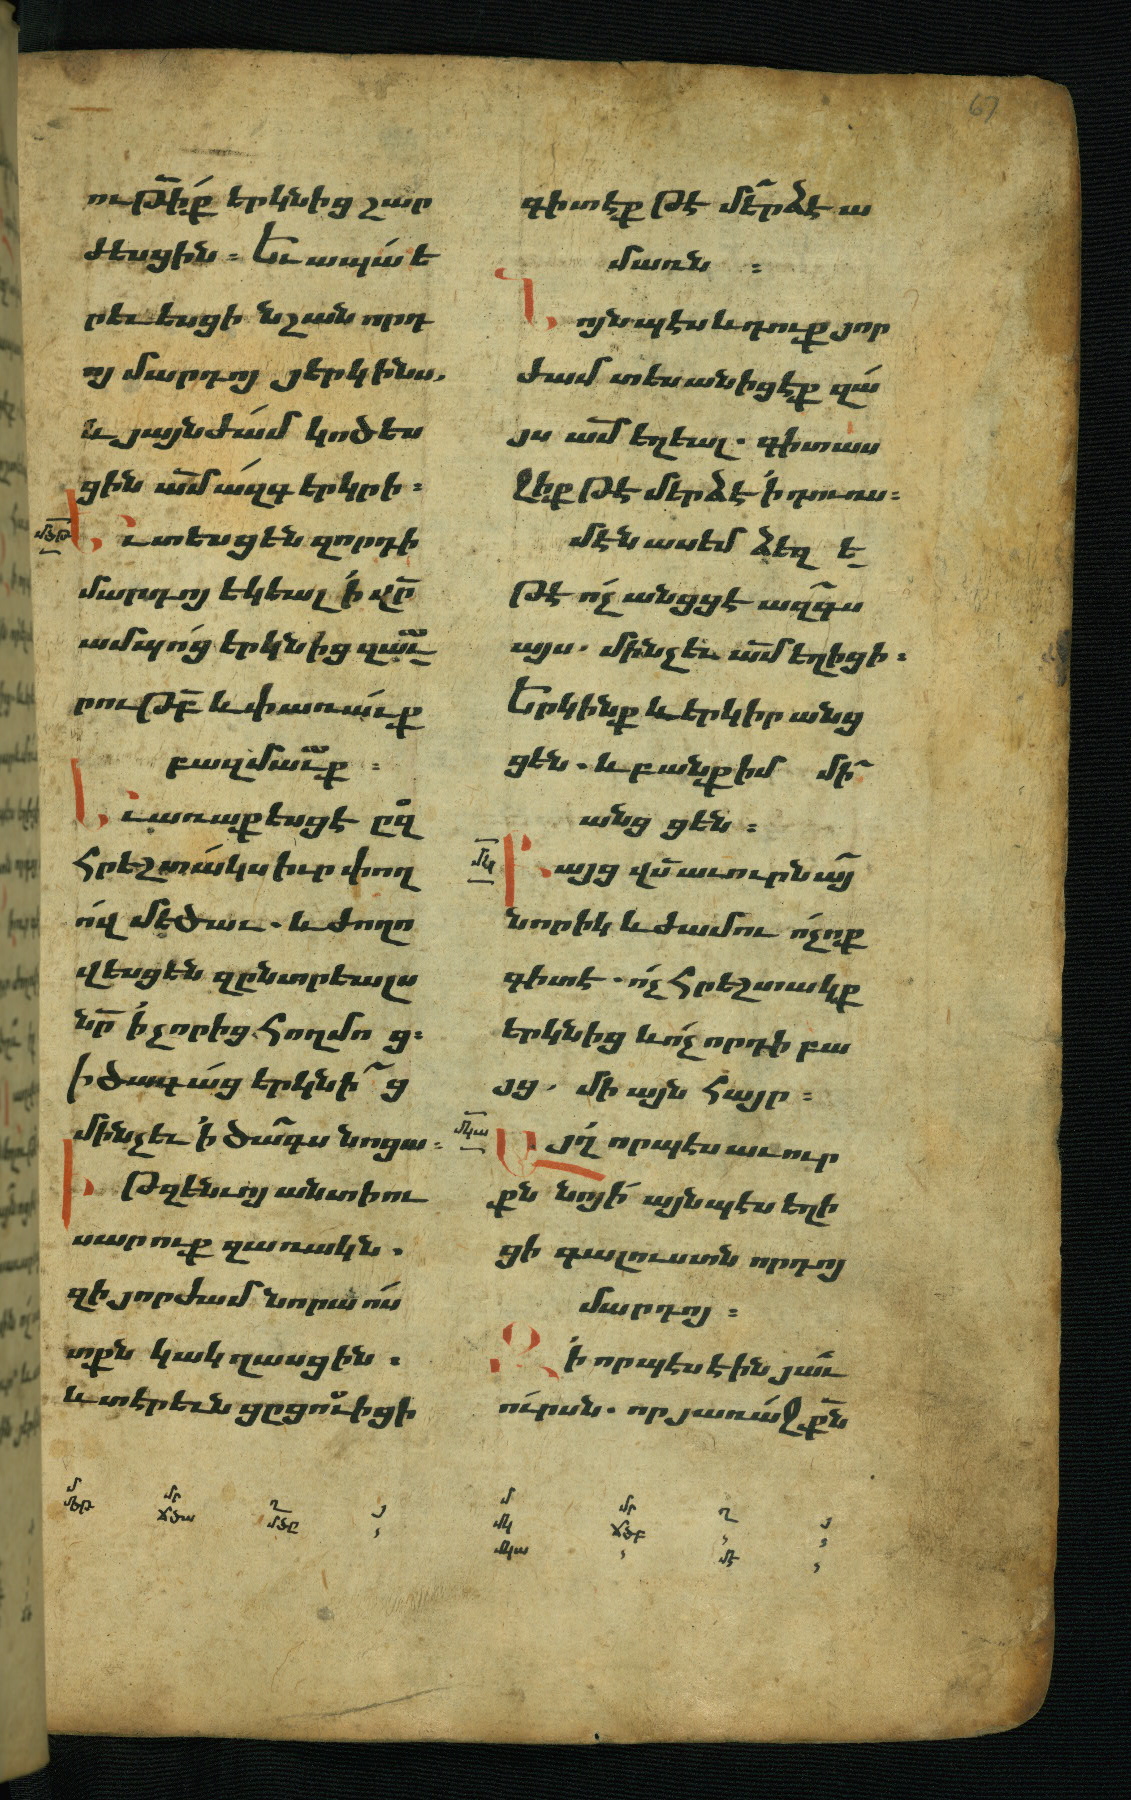 67
ութի՛ք երկնից շար
ժեսցին։ Եւ ապա՛ ե
րեւեսցի նշան որդ
ոյ մարդոյ յերկինս,
և յայնժա՛մ կոծես
ցին ամ ա՛զգ երկրի։
մծթ
Եւ տեսցեն զորդի
մարդոյ եկեալ ի՛ վր
ամպո՛ց երկնից զաւ
րութբ և փառա՛ւք
բազմաւք։
Եւ առաքեսցէ ըզ
հրեշտա՛կս իւր փող
ո՛վ մեծաւ. և ժողո
վեսցեն զընտրեալս
նր ի՛ չորից հողմո ց։
ի ծագա՛ց երկնի ց
մինչեւ ի՛ ծագս նոցա։
Ի թզենւոյ անտի ու
սարուք զառակն.
զի յորժամ նորա ո՛ս
տքն կակղասցին.
և տերեւն ցըցուիցի
գիտէք թէ մերձ է ա
մառն ։
Նոյնպէս և դուք յոր
ժամ տեսանիցէք զա՛
յս ամ եղեալ. գիտաս
ջիք թէ մերձ է ի՛ դուռս։
մէն ասեմ ձեզ ե
թէ ո՛չ անցցէ ազգս
այս. մինչեւ ամ եղիցի։
Երկինք և երկիր անց
ցեն. և բանք իմ մի
անց ցեն։
մկ
Բայց վս աւուրն այ
նորիկ և ժամու ո՛չ ոք
գիտէ. ո՛չ հրեշտակք
երկնից և ո՛չ որդի բա
յց. մի այն հայր։
մկա
Այղ որպէս աւուր
քն նոյի՛ այնպէս եղի
ցի գալուստն որդոյ
մարդոյ։
Զի՛ որպէս էին յաւ
ո՛ւրսն. որ յառա՛ջ քն
մ մր ղ յ
մծթ ճծա մծը ,
մ մր ղ յ
մկ ճծբ , ,
մկա , մէ ,